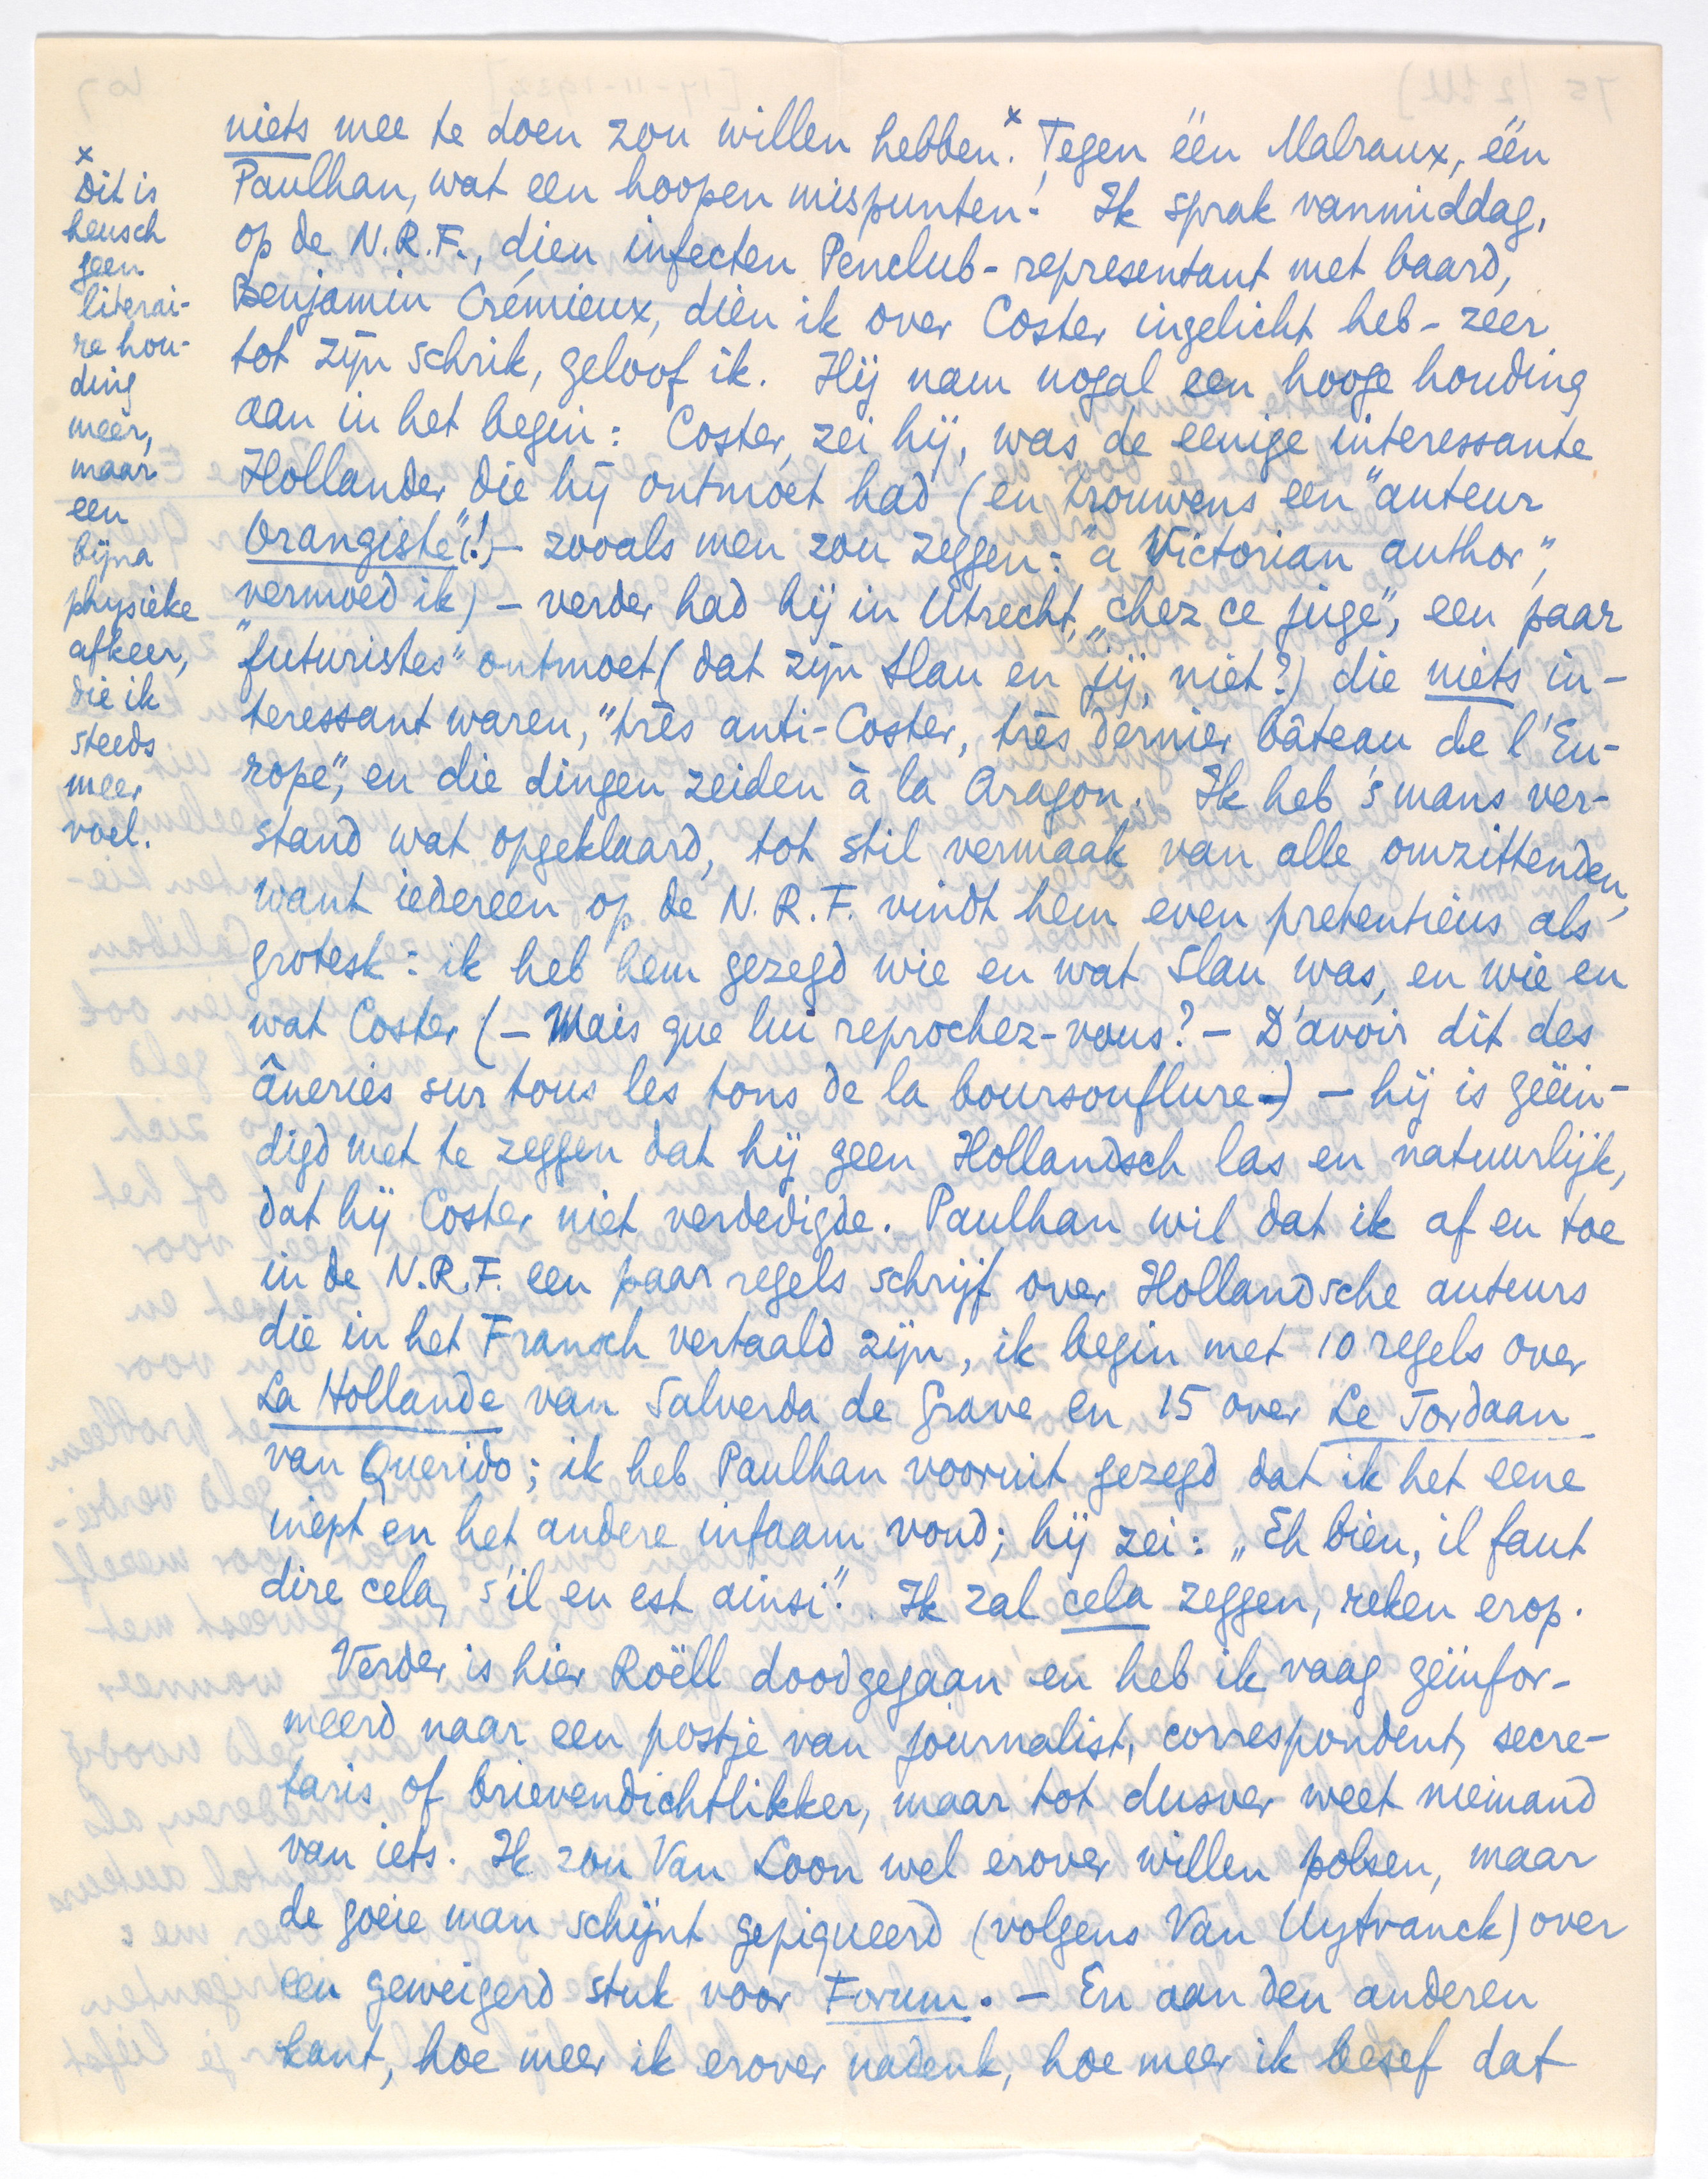 niets mee te doen zou willen hebben.ˣ Tegen één Malraux, één
Paulhan, wat een hoopen mispunten! Ik sprak vanmiddag,
op de N.R.F., dien infecten Penclub-representant met baard,
Benjamin Crémieux, dien ik over Coster ingelicht heb - zeer
tot zijn schrik, geloof ik. Hij nam nogal een hooge houding
aan in het begin: Coster, zei hij, was de eenige interessante
Hollander die hij ontmoet had (en trouwens een "auteur
Orangiste"(!) - zooals men zou zeggen: "a Victorian author",
vermoed ik) - verder had hij in Utrecht, "chez ce juge", een paar
"futuristes" ontmoet (dat zijn Slau en jij, niet?) die niets in-
teressant waren, "très anti-Coster, très dernier bâteau de l'Eu-
rope", en die dingen zeiden à la Aragon. Ik heb 's mans ver-
stand wat opgeklaard, tot stil vermaak van alle omzittenden,
want iedereen op de N.R.F. vindt hem even pretentieus als
grotesk: ik heb hem gezegd wie en wat Slau was, en wie en
wat Coster (- Mais que lui reprochez-vous? - D'avoir dit des
âneries sur tous les tons de la boursouflure -) - hij is geëin-
digd met te zeggen dat hij geen Hollandsch las en natuurlijk,
dat hij Coster niet verdedigde. Paulhan wil dat ik af en toe
in de N.R.F. een paar regels schrijf over Hollandsche auteurs
die in het Fransch vertaald zijn, ik begin met 10 regels over
La Hollande van Salverda de Grave en 15 over Le Jordaan
van Querido; ik heb Paulhan vooruit gezegd dat ik het eene
inept en het andere infaam vond; hij zei: „Eh bien, il faut
dire cela, s'il en est ainsi". Ik zal cela zeggen, reken erop.
Verder is hier Roëll doodgegaan en heb ik vaag geïnfor-
meerd naar een postje van journalist, correspondent, secre-
taris of brievendichtlikker, maar tot dusver weet niemand
van iets. Ik zou Van Loon wel erover willen polsen, maar
de goeie man schijnt gepiqueerd (volgens Van Uytvanck) over
een geweigerd stuk voor Forum. - En aan den anderen
kant, hoe meer ik erover nadenk, hoe meer ik besef dat
x
Dit is
heusch
geen
literai-
re hou-
ding
meer,
maar
een
bijna
physieke
afkeer,
die ik
steeds
meer
voel.